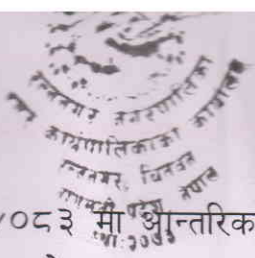 रत्ननगर नगरपालिका
नगर कार्यपालिकाको कार्यालय
रत्ननगर, चितवन
बागमती प्रदेश नेपाल
०८३ मा आन्तरिक